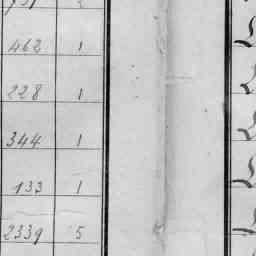 462 1
228 1
344 1
133 1
2339 5